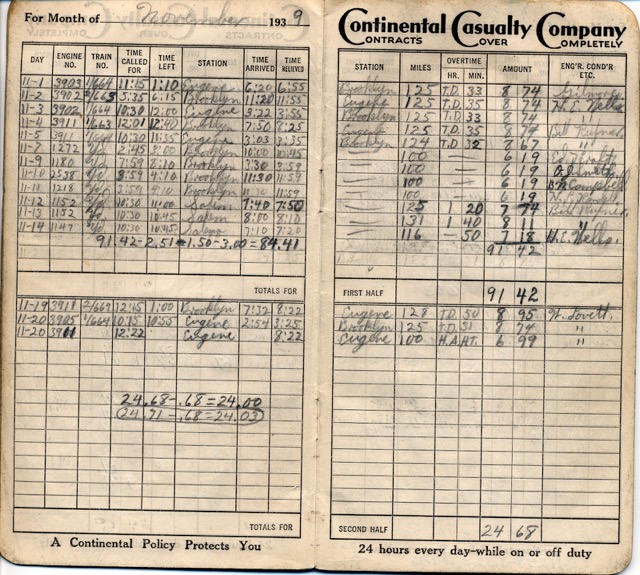 For Month of November 1939
DAY ENGINE NO. TRAIN NO. TIME CALLED FOR TIME LEFT STATION TIME ARRIVED TIME RELIEVED
11-1 3903 1/664 11:15 1:10 Eugene 6:20 6:55
11-2 3902 5:35 6:15 Brooklyn 11:20 11:55
11-3 3902 1/664 10:30 12:00 Eugene 3:22 3:55
11-4 3911 Brooklyn 7:50 8:25
11-5 3911 10:30 11:35 Eugene 3:03 3:35
11-7 1272 2:45 3:00 Brooklyn 10:00 10:45
11-9 1180 7:59 8:10 Brooklyn 3:30
11-10 2538 3:59 4:10 Brooklyn 11:30 11:59
11-11 1218 3:59 Brooklyn 11:30 11:59
11-12 1152 10:30 11:00 Salem 7:40 7:50
11-13 1152 10:30 10:45 Salem 8:00 8:10
11-14 1147 10:30 10:45 Salem 7:10 7:20
91.42-2.51=1.50-3.00=84.41
TOTALS FOR
11-19 3911 2/663 12:45 1:00 Brooklyn 7:32 8:22
11-20 3905 1/664 10:15 10:55 Eugene 2:54 3:25
11-20 3911 12:22 Eugene 8:22
24.68-.68=24.00
24.71-.68=24.03
TOTALS FOR
A Continental Policy Protects You
Continental Casualty Company
CONTRACTS COVER COMPLETELY
STATION MILES OVERTIME HR. MIN. AMOUNT ENG'R. COND'R ETC.
Brooklyn 125 T.D. 33 8 74 Gilmore
Eugene 125 T.D. 35 8 74 H.E. Wells
Brooklyn 125 T.D. 33 8 74 "
Eugene 125 T.D. 35 8 74 Bill Rufner
Brooklyn 124 T.D. 32 8 67 "
100 — 6 19
100 — 6 19
100 — 6 19 Campbell
100 — 6 19
125 20 7 74 Bill Rufner
131 1 40 8 11 "
116 — 50 7 18 H.E. Wells
91 42
FIRST HALF 91 42
Eugene 128 T.D. 50 8 95 W. Lovett
Brooklyn 125 T.D. 31 8 74 "
Eugene 100 H.A.HT. 6 99 "
SECOND HALF 24 68
24 hours every day-while on or off duty